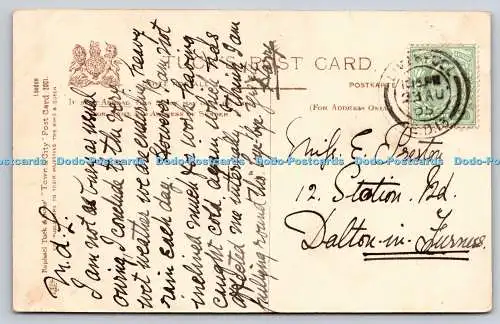 TUCK'S POST CARD
POSTCARD
(FOR ADDRESS ONLY)
Raphael Tuck & Sons' "Town & City" Post Card 2001.
M.d.L.
I am not as busy as usual
owing, I conclude to the very
wet weather we are having heavy
rain each day. However am not
inclined much for work having
caught cold again which has
affected me internally
again I am
pulling round tho'. Goodbye yours
Mary
Miss E. Preston
12. Station. Rd.
Dalton-in-Furness.
Dodo-Postcards Dodo-Postcards Dodo-Postcards Dodo-Postcards Dodo-Postcards Dodo-Postcards